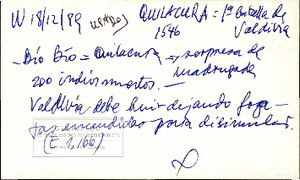 W 18/12/89 QUILACURA = 1ª batalla de Valdivia
1546
- Bío Bío = Quilacura → sorpresa de madrugada
200 indios muertos. —
Valdivia debe huir dejando foga-
tas encendidas para disimular.
(E. 1, 166)